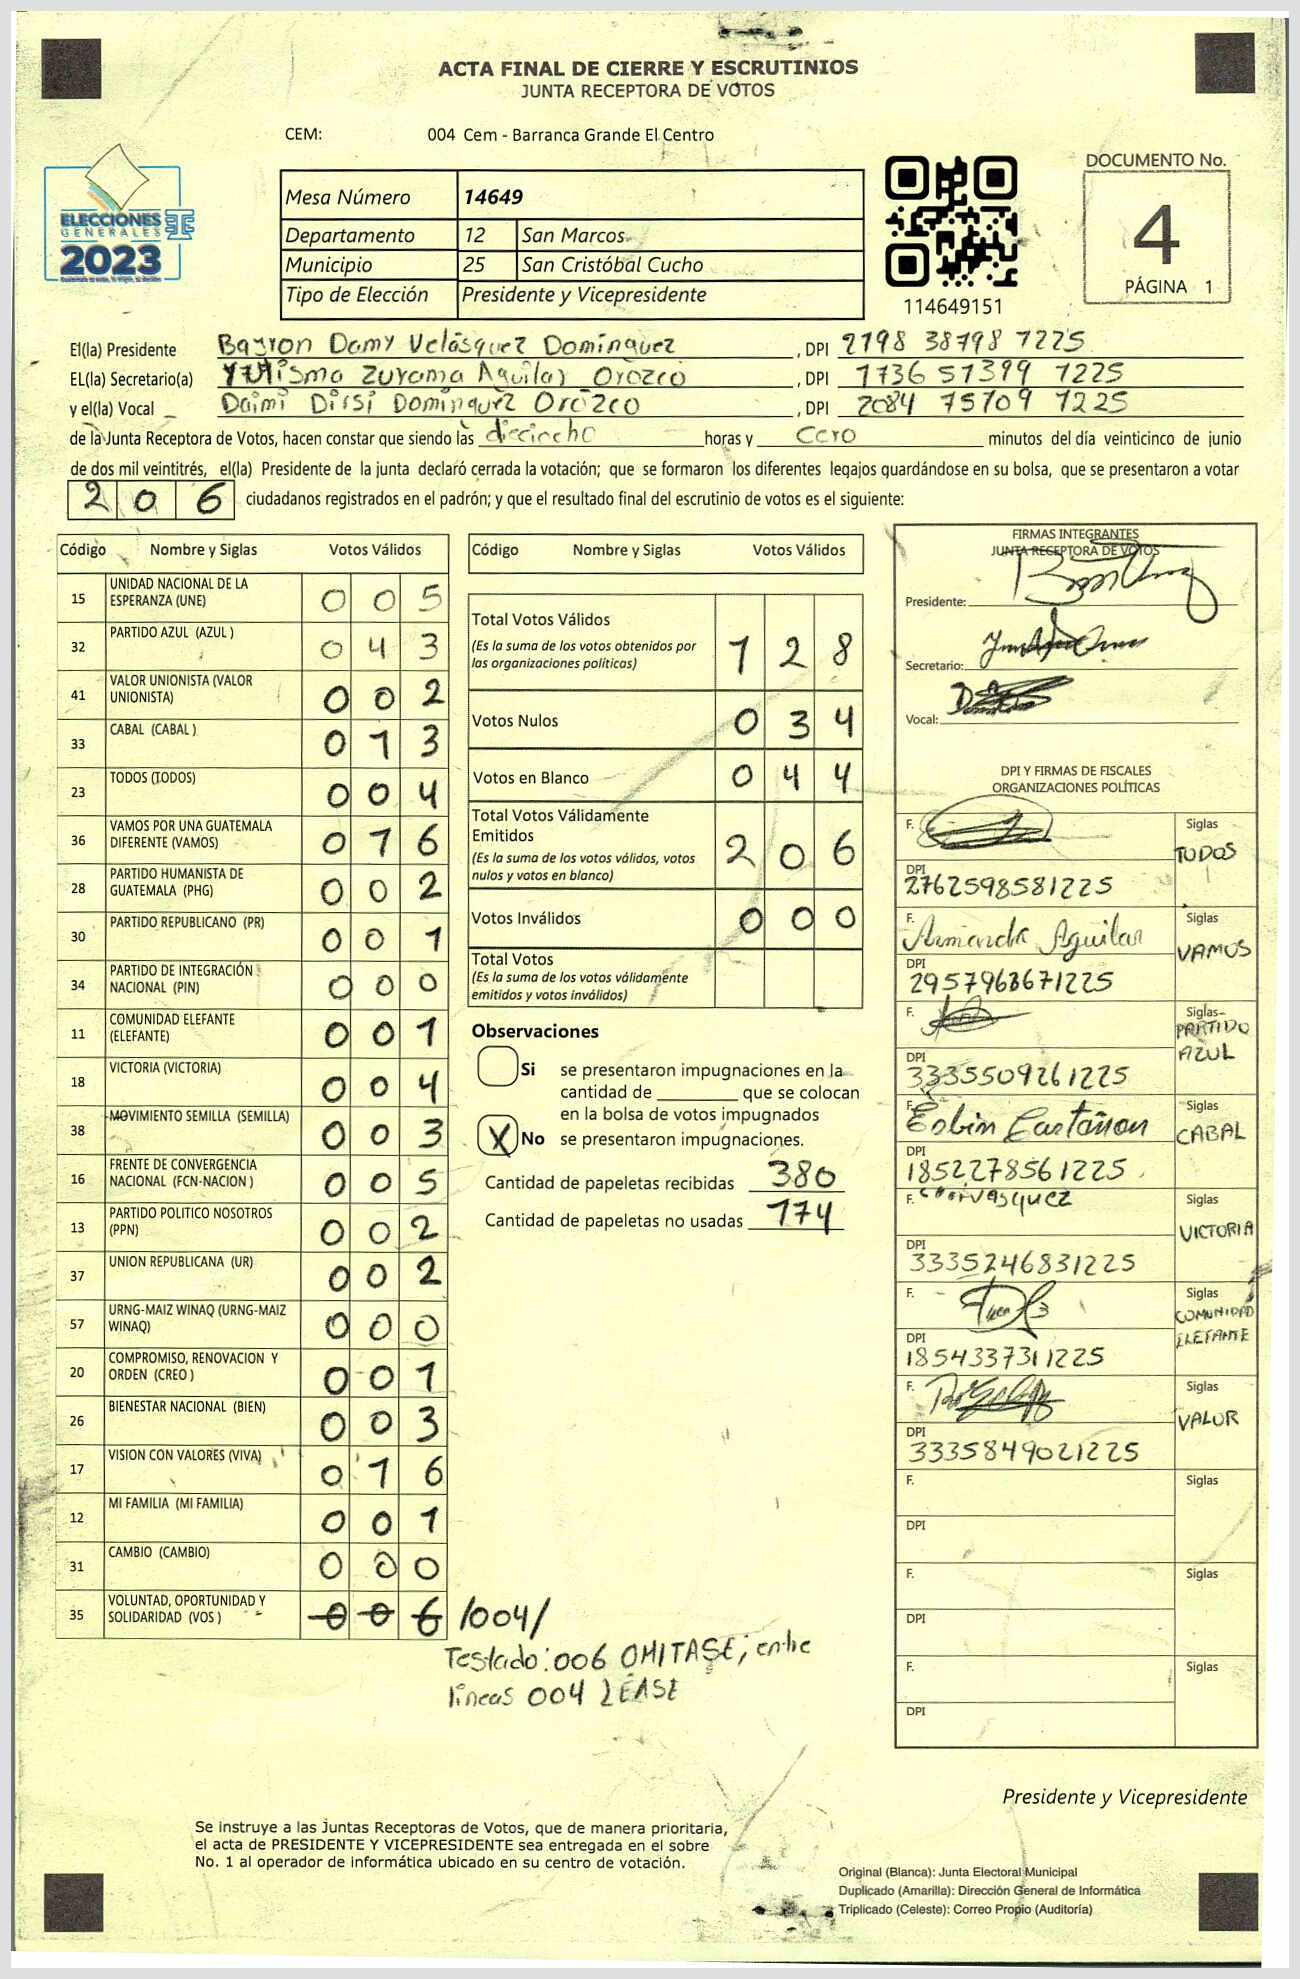 ACTA FINAL DE CIERRE Y ESCRUTINIOS
JUNTA RECEPTORA DE VOTOS
CEM: 004 Cem - Barranca Grande El Centro
ELECCIONES
GENERALES
2023
Mesa Número 14649
Departamento 12 San Marcos
Municipio 25 San Cristóbal Cucho
Tipo de Elección Presidente y Vicepresidente
114649151
DOCUMENTO No.
4
PÁGINA 1
El(la) Presidente Bayron Damy Velásquez Domínguez, DPI 2198 38798 1225
EL(la) Secretario(a) Zurama Aguilar Orozco, DPI 1736 51399 1225
y el(la) Vocal Daimi Dirsi Domínguez Orozco, DPI 2084 75709 1225
de la Junta Receptora de Votos, hacen constar que siendo las dieciocho horas y cero minutos del día veinticinco de junio
de dos mil veintitrés, el(la) Presidente de la junta declaró cerrada la votación; que se formaron los diferentes legajos guardándose en su bolsa, que se presentaron a votar
206 ciudadanos registrados en el padrón; y que el resultado final del escrutinio de votos es el siguiente:
Código Nombre y Siglas Votos Válidos
15 UNIDAD NACIONAL DE LA ESPERANZA (UNE) 005
32 PARTIDO AZUL (AZUL ) 043
41 VALOR UNIONISTA (VALOR UNIONISTA) 002
33 CABAL (CABAL ) 013
23 TODOS (TODOS) 004
36 VAMOS POR UNA GUATEMALA DIFERENTE (VAMOS) 016
28 PARTIDO HUMANISTA DE GUATEMALA (PHG) 002
30 PARTIDO REPUBLICANO (PR) 001
34 PARTIDO DE INTEGRACIÓN NACIONAL (PIN) 000
11 COMUNIDAD ELEFANTE (ELEFANTE) 001
18 VICTORIA (VICTORIA) 004
38 MOVIMIENTO SEMILLA (SEMILLA) 003
16 FRENTE DE CONVERGENCIA NACIONAL (FCN-NACION ) 005
13 PARTIDO POLITICO NOSOTROS (PPN) 002
37 UNION REPUBLICANA (UR) 002
57 URNG-MAIZ WINAQ (URNG-MAIZ WINAQ) 000
20 COMPROMISO, RENOVACION Y ORDEN (CREO ) 001
26 BIENESTAR NACIONAL (BIEN) 003
17 VISION CON VALORES (VIVA) 016
12 MI FAMILIA (MI FAMILIA) 001
31 CAMBIO (CAMBIO) 000
35 VOLUNTAD, OPORTUNIDAD Y SOLIDARIDAD (VOS ) 006 /004/
Testado: 006 OMITASE; entre
líneas 004 LEASE
Código Nombre y Siglas Votos Válidos
Total Votos Válidos
(Es la suma de los votos obtenidos por
las organizaciones políticas) 128
Votos Nulos 034
Votos en Blanco 044
Total Votos Válidamente
Emitidos
(Es la suma de los votos válidos, votos
nulos y votos en blanco) 206
Votos Inválidos 000
Total Votos
(Es la suma de los votos válidamente
emitidos y votos inválidos)
Observaciones
Si se presentaron impugnaciones en la
cantidad de ________ que se colocan
en la bolsa de votos impugnados
X No se presentaron impugnaciones.
Cantidad de papeletas recibidas 380
Cantidad de papeletas no usadas 174
FIRMAS INTEGRANTES
JUNTA RECEPTORA DE VOTOS
Presidente:
Secretario:
Vocal:
DPI Y FIRMAS DE FISCALES
ORGANIZACIONES POLÍTICAS
F. Siglas
TODOS
DPI
2762598581225
F. Armanda Aguilar Siglas
VAMOS
DPI
2957968671225
F. Siglas
PARTIDO
AZUL
DPI
3335509261225
F. Esbin Castañon Siglas
CABAL
DPI
1852278561225
F. Siglas
VICTORIA
DPI
3335246831225
F. Siglas
COMUNIDAD
ELEFANTE
DPI
1854337311225
F. Siglas
VALOR
DPI
3335849021225
F. Siglas
DPI
F. Siglas
DPI
F. Siglas
DPI
Presidente y Vicepresidente
Se instruye a las Juntas Receptoras de Votos, que de manera prioritaria,
el acta de PRESIDENTE Y VICEPRESIDENTE sea entregada en el sobre
No. 1 al operador de informática ubicado en su centro de votación.
Original (Blanca): Junta Electoral Municipal
Duplicado (Amarilla): Dirección General de Informática
Triplicado (Celeste): Correo Propio (Auditoría)